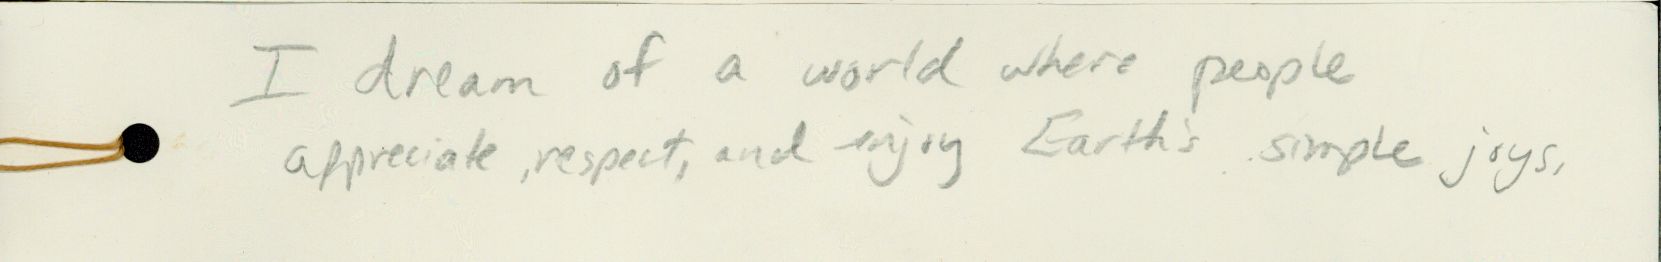 I dream of a world where people
appreciate, respect, and enjoy Earth's simple joys.